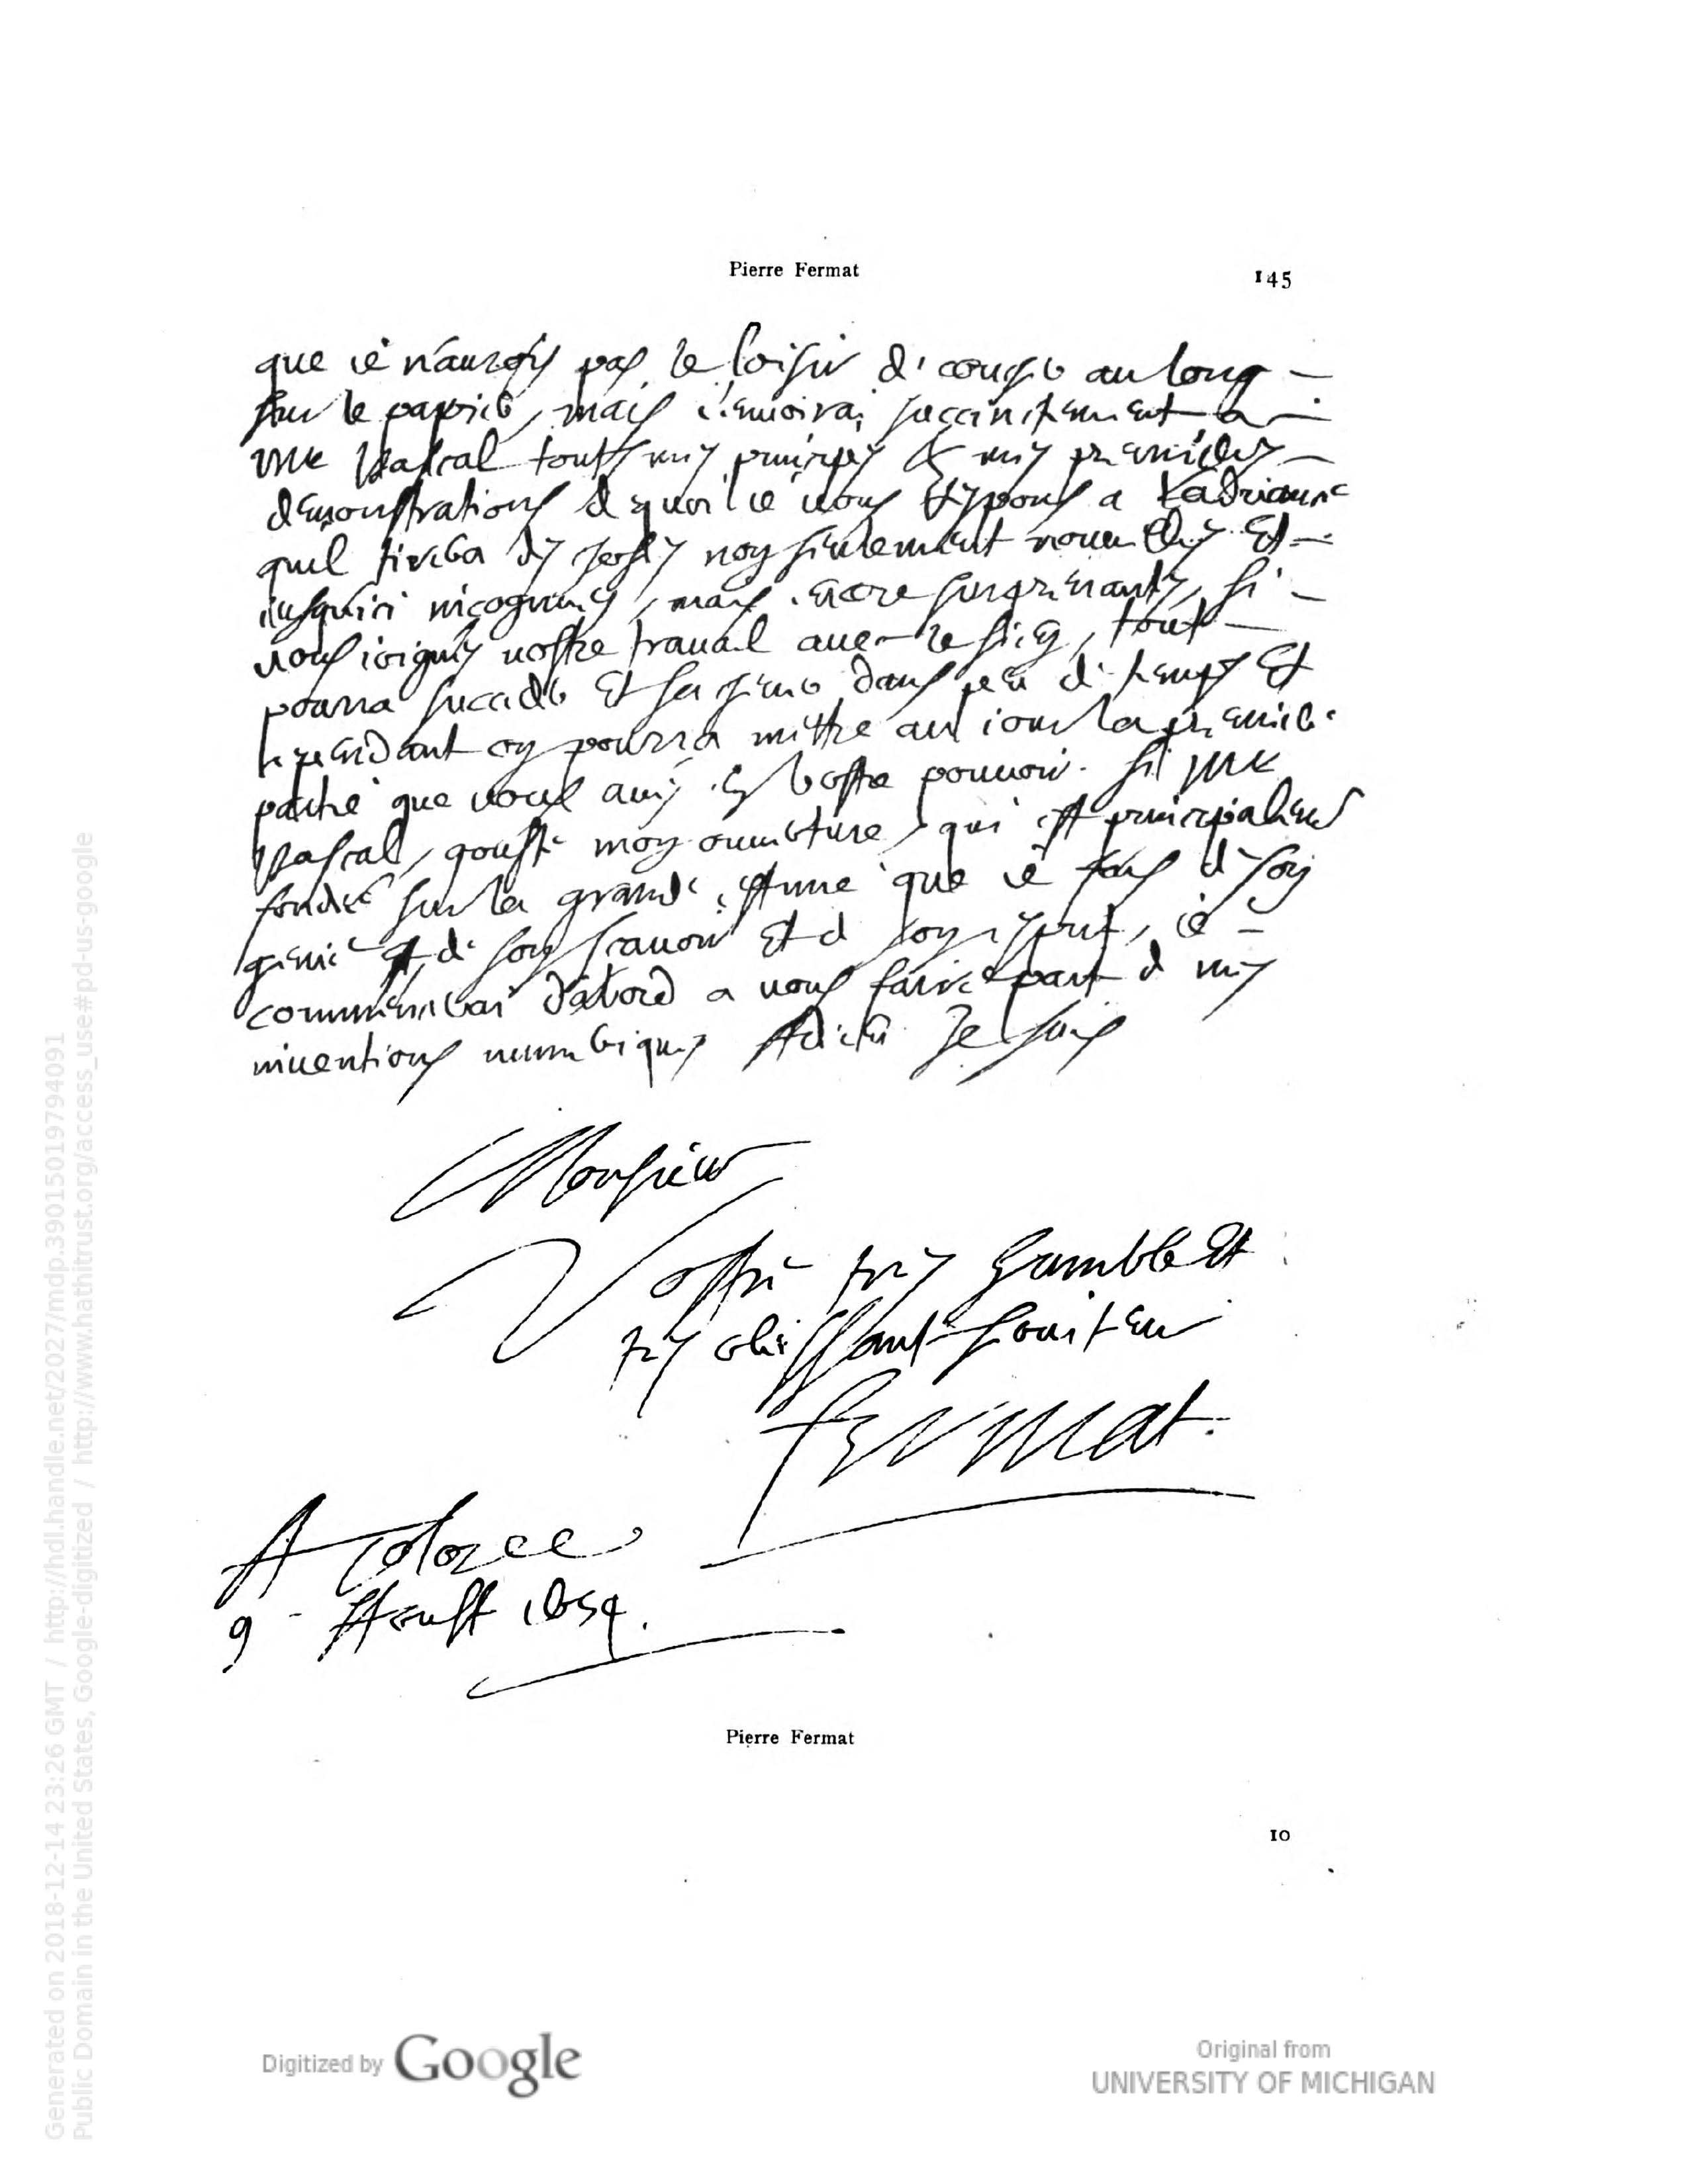 Pierre Fermat
145
que ie n'aurois pas le loisir de coucher au long
sur le papier, mais i'enuoirai succinctement a
Mr Pascal touts mes principes & mes premieres
demonstrations de quoi ie vous respons a l'aduance
quil tirera des choses non seulement nouuelles Et
iusquici incognues, mais encore surprenantes, si
vous ioignes vostre trauail auec le sien, tout
pourra succeder Et s'acheuer dans peu de temps Et
cependant on pourra mettre au iour la premiere
partie que vous aués en vostre pouuoir. si Mr
Pascal gouste mon ouuerture qui est principalement
fondee sur la grande estime que ie fais de son
genie et de son scauoir Et de son esprit, ie
commencerai d'abord a vous faire part de mes
inuentions numeriques Adieu Je suis
Monsieur
Vostre tres humble Et
tres obeissant seruiteur
Fermat.
A Tolose ce
9 Aoust 1654.
Pierre Fermat
10
Digitized by Google
Original from
UNIVERSITY OF MICHIGAN
Generated on 2018-12-14 23:26 GMT / http://hdl.handle.net/2027/mdp.39015019794091
Public Domain in the United States, Google-digitized / http://www.hathitrust.org/access_use#pd-us-google